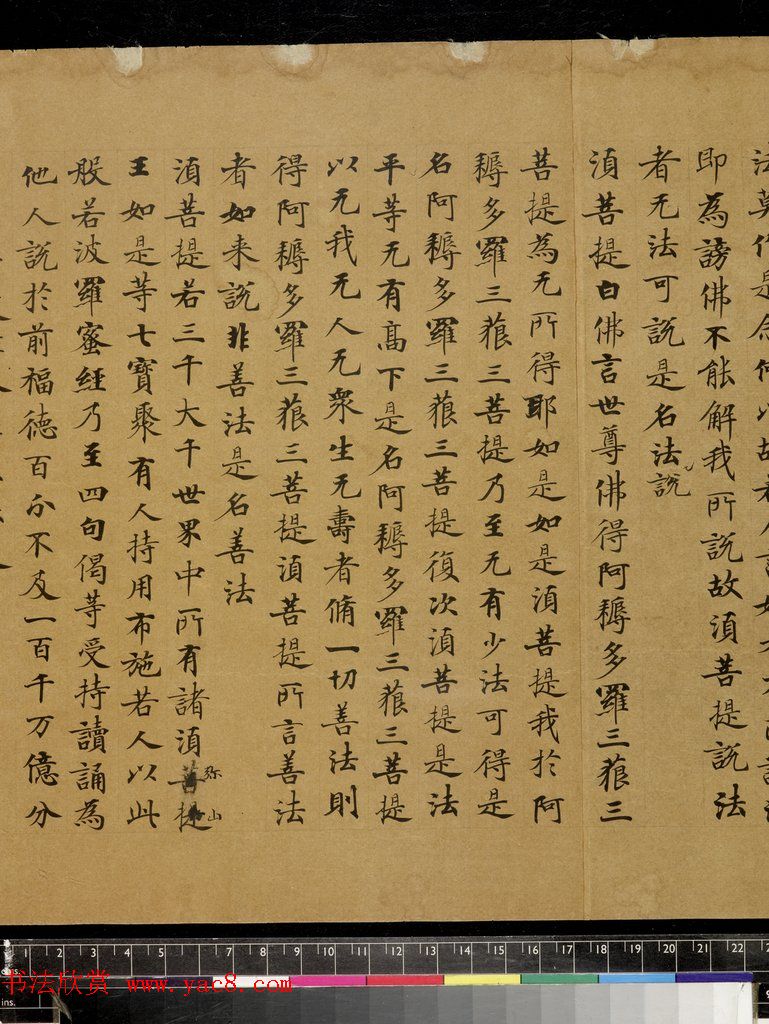 法莫作是念何以故若人言如
即為謗佛不能解我所說故湏菩提說法
者无法可說是名法說
湏菩提白佛言世尊佛得阿耨多羅三藐三
菩提為无所得耶如是如是湏菩提我於阿
耨多羅三藐三菩提乃至无有少法可得是
名阿耨多羅三藐三菩提復次湏菩提是法
平等无有高下是名阿耨多羅三藐三菩提
以无我无人无衆生无壽者脩一切善法則
得阿耨多羅三藐三菩提湏菩提所言善法
者如来說非善法是名善法
湏菩提若三千大千世界中所有諸湏菩提
弥山
王如是等七寶聚有人持用布施若人以此
般若波羅蜜經乃至四句偈等受持讀誦為
他人說於前福德百分不及一百千万億分
1 2 3 4 5 6 7 8 9 10 11 12 13 14 15 16 17 18 19 20 21 22 23
cms.
书法欣赏 www.yac8.com
ins.